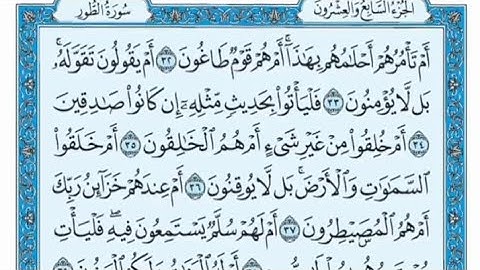 سُورَةُ الطُّورِ
الجُزْءُ السَّابِعُ وَالعِشْرُونَ
أَمْ تَأْمُرُهُمْ أَحْلَامُهُم بِهَٰذَآ ۚ أَمْ هُمْ قَوْمٌ طَاغُونَ ٣٢ أَمْ يَقُولُونَ تَقَوَّلَهُۥ ۚ
بَل لَّا يُؤْمِنُونَ ٣٣ فَلْيَأْتُوا۟ بِحَدِيثٍ مِّثْلِهِۦٓ إِن كَانُوا۟ صَادِقِينَ
٣٤ أَمْ خُلِقُوا۟ مِنْ غَيْرِ شَىْءٍ أَمْ هُمُ ٱلْخَالِقُونَ ٣٥ أَمْ خَلَقُوا۟
ٱلسَّمَٰوَٰتِ وَٱلْأَرْضَ ۚ بَل لَّا يُوقِنُونَ ٣٦ أَمْ عِندَهُمْ خَزَآئِنُ رَبِّكَ
أَمْ هُمُ ٱلْمُصَۜيْطِرُونَ ٣٧ أَمْ لَهُمْ سُلَّمٌ يَسْتَمِعُونَ فِيهِ ۖ فَلْيَأْتِ